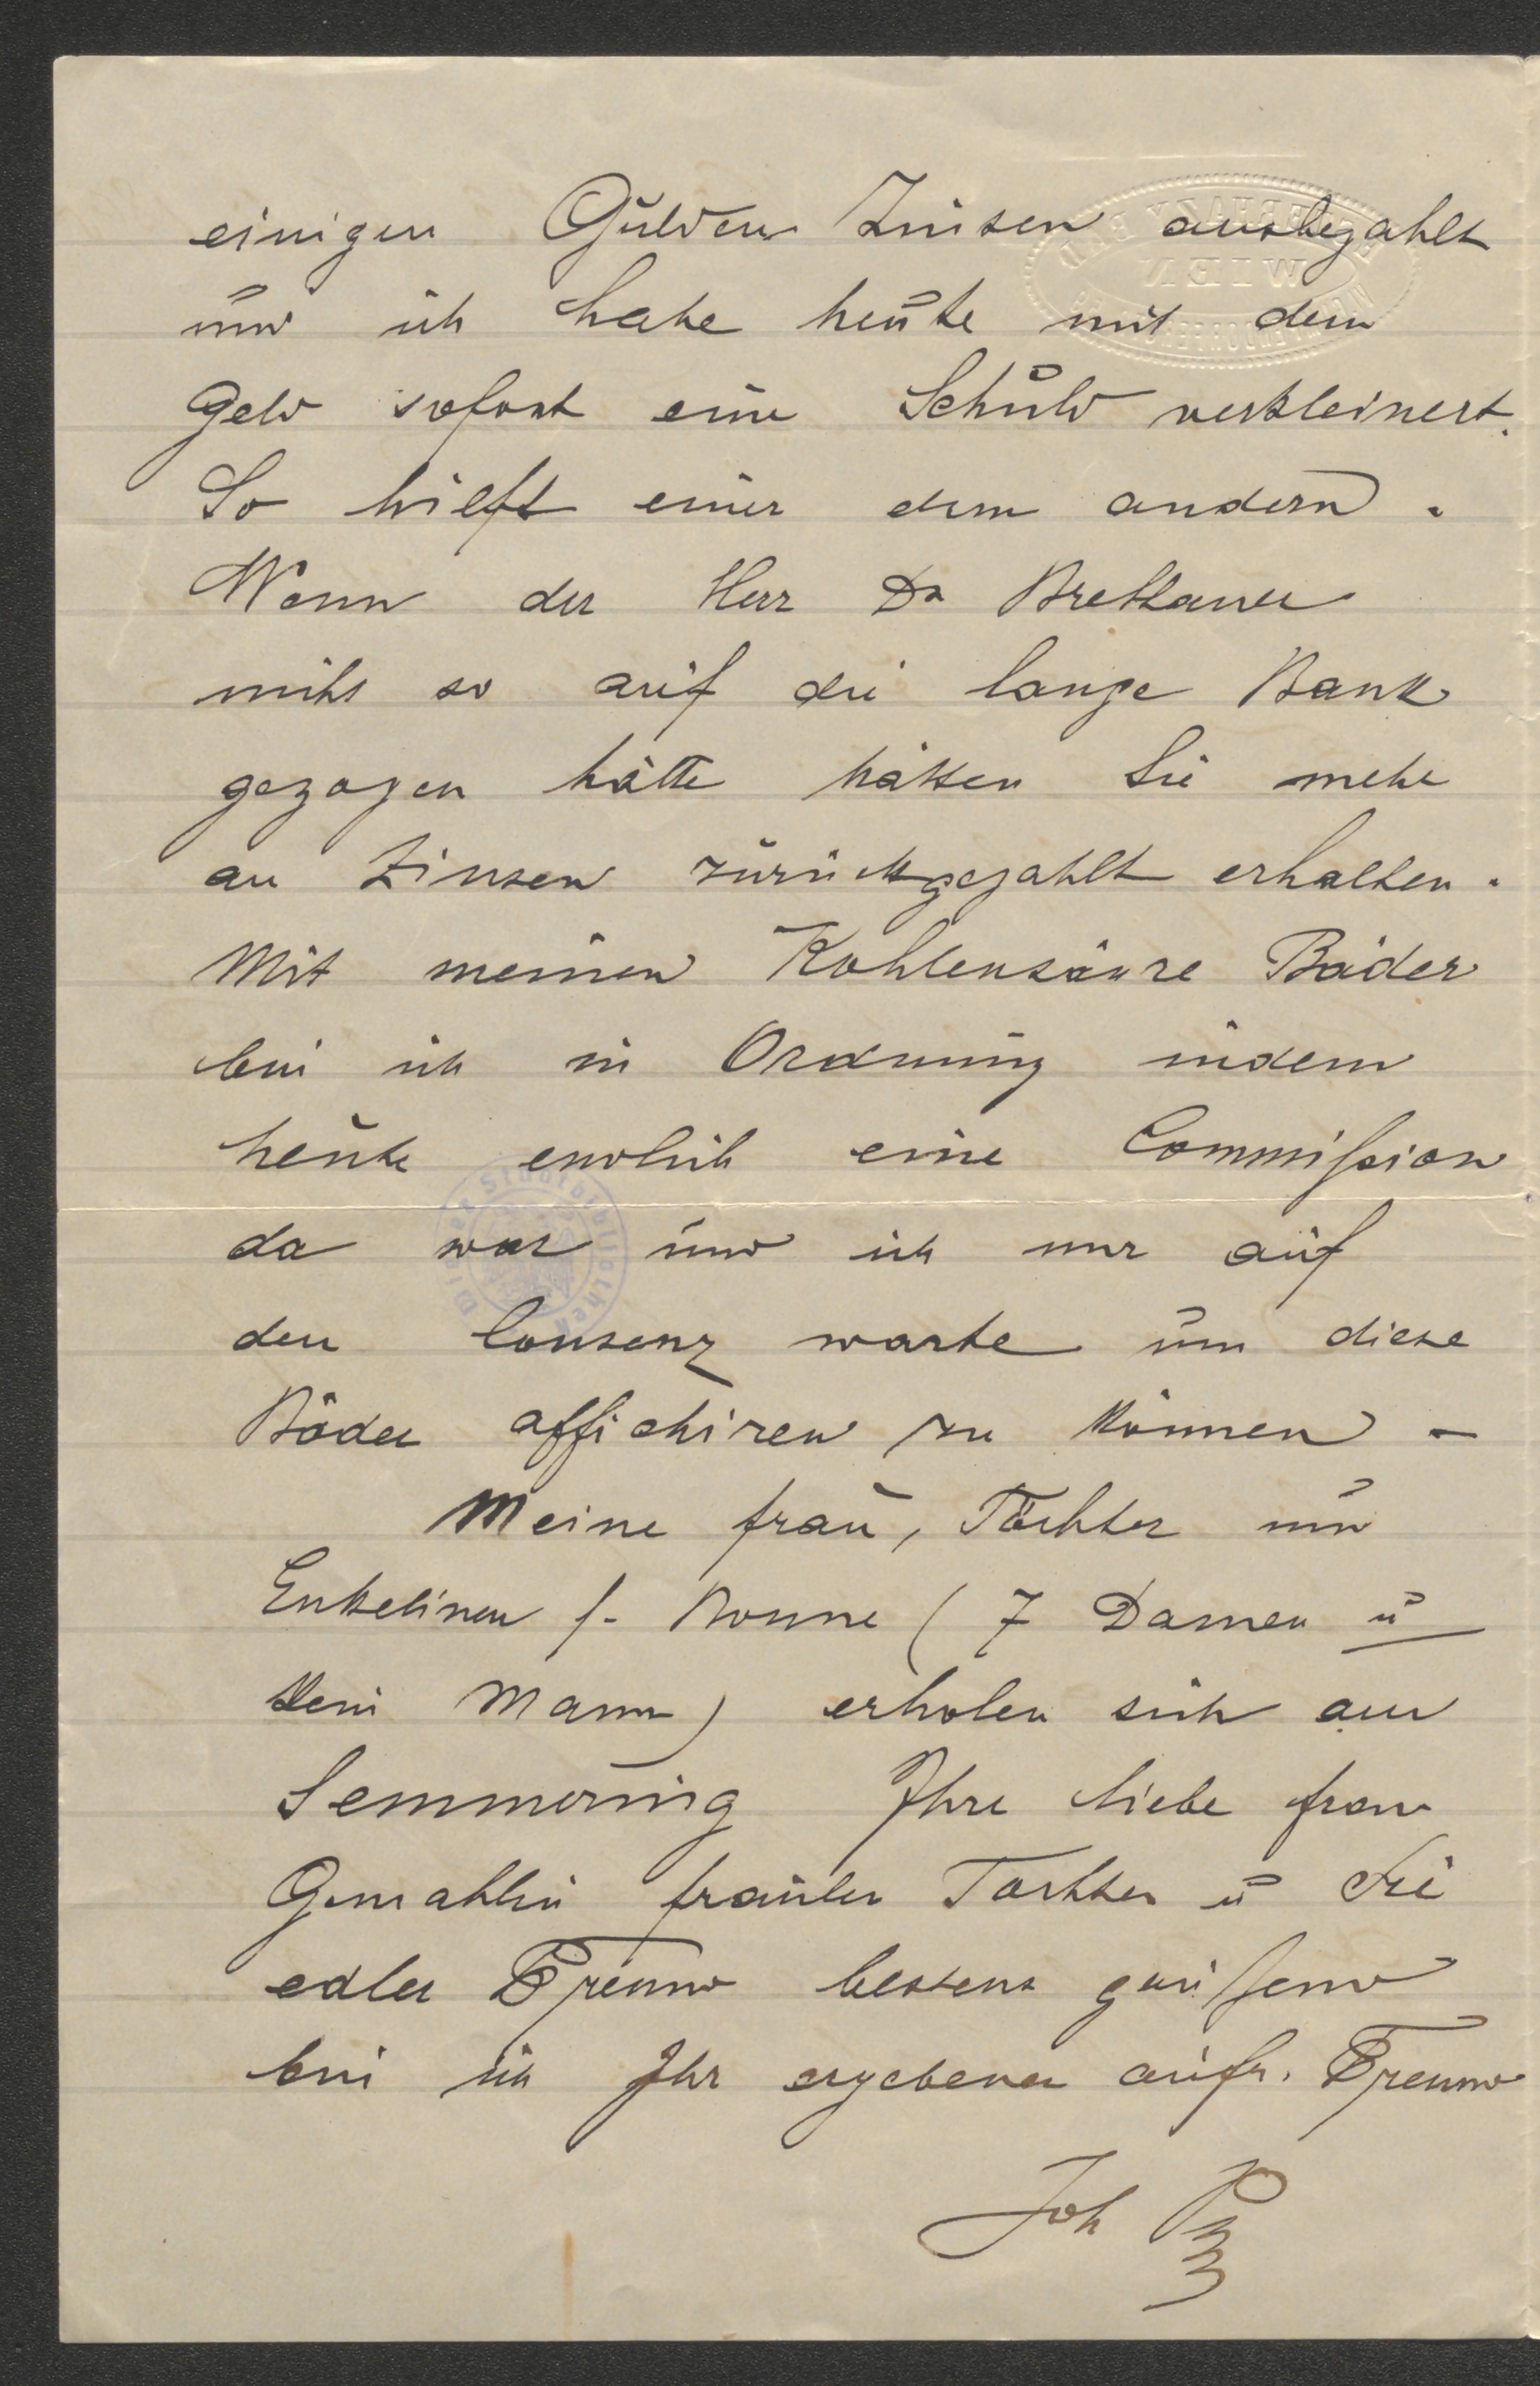 einigen Gulden Zinsen ausbezahlt
und ich habe heute mit dem
Geld sofort eine Schuld verkleinert.
So hilft einer dem andern.
Wenn der Herr Dr Brettauer
nicht so auf die lange Bank
gezogen hätte hätten Sie mehr
an Zinsen zurückgezahlt erhalten.
Mit meinen Kohlensäure Bäder
bin ich in Ordnung indem
heute endlich eine Commission
da war und ich nur auf
den Consenz warte um diese
Bäder affichiren zu können –
Meine Frau, Töchter und
Enkelinen s. Bonne (7 Damen u
kein Mann) erholen sich am
Semmering Ihre liebe Frau
Gemahlin Fräulen Tochter u Sie
edler Freund bestens grüssend
bin ich Ihr ergebener aufr. Freund
Joh
WIEN
Wiener Stadtbibliothek